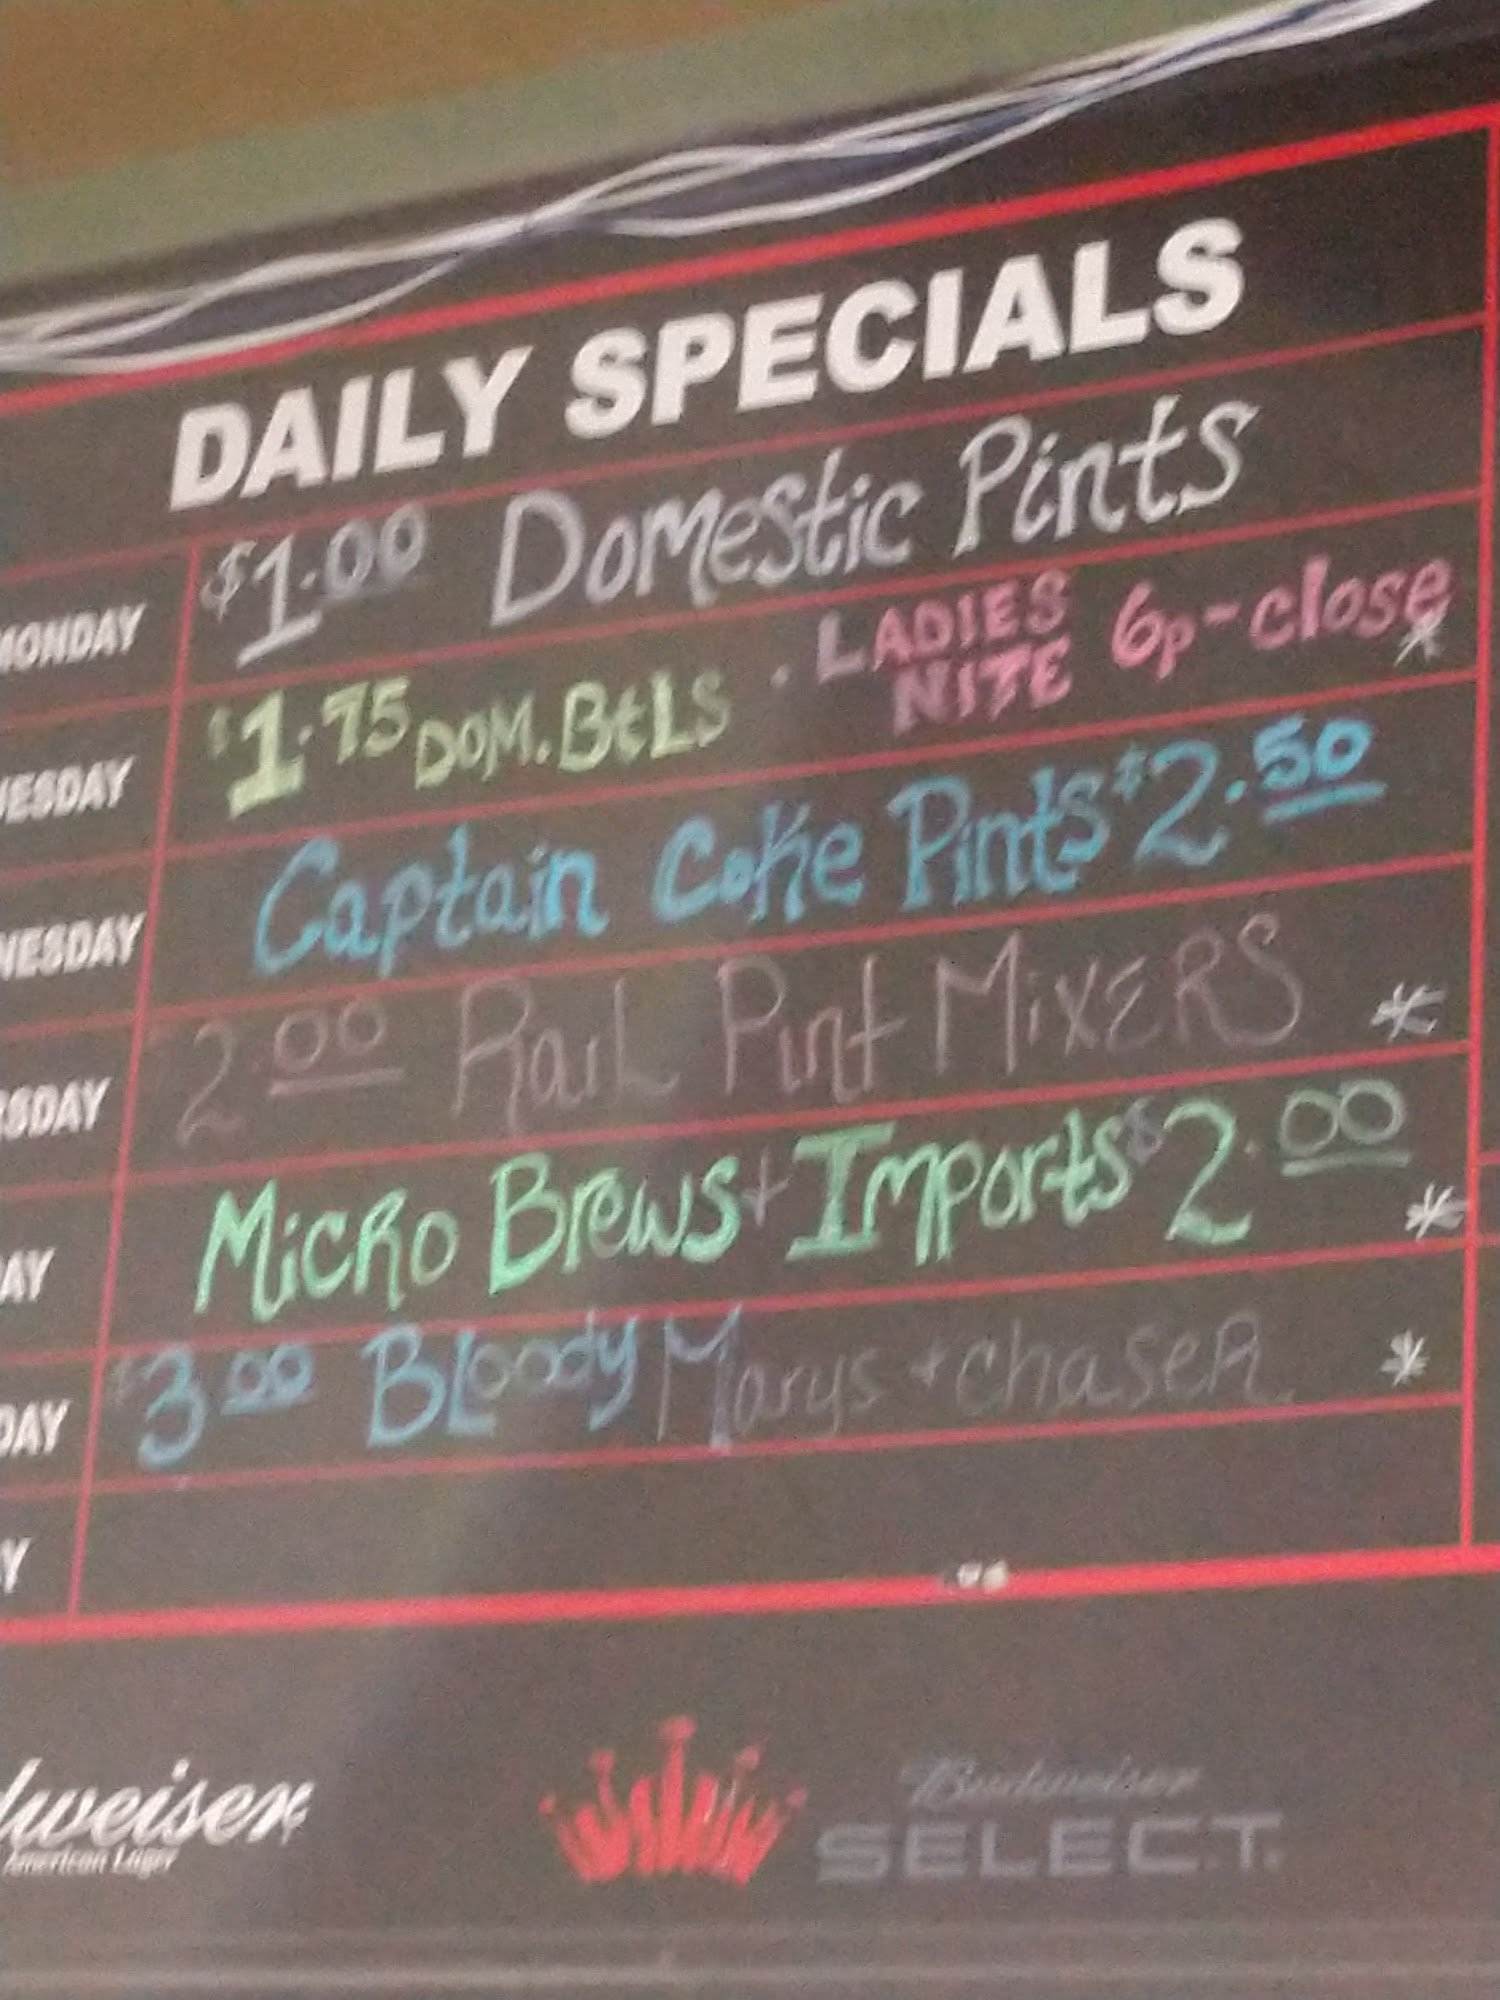 DAILY SPECIALS
MONDAY $1.00 Domestic Pints
UESDAY $1.75 DOM. BtLS . LADIES NITE 6p-close *
NESDAY Captain Coke Pints $2.50
SDAY 2.00 Rail Pint MixERS *
AY Micro Brews + Imports $2.00 *
DAY $3.00 Bloody Marys + chaseR *
Y
dweiser
American Lager
Budweiser
SELECT.